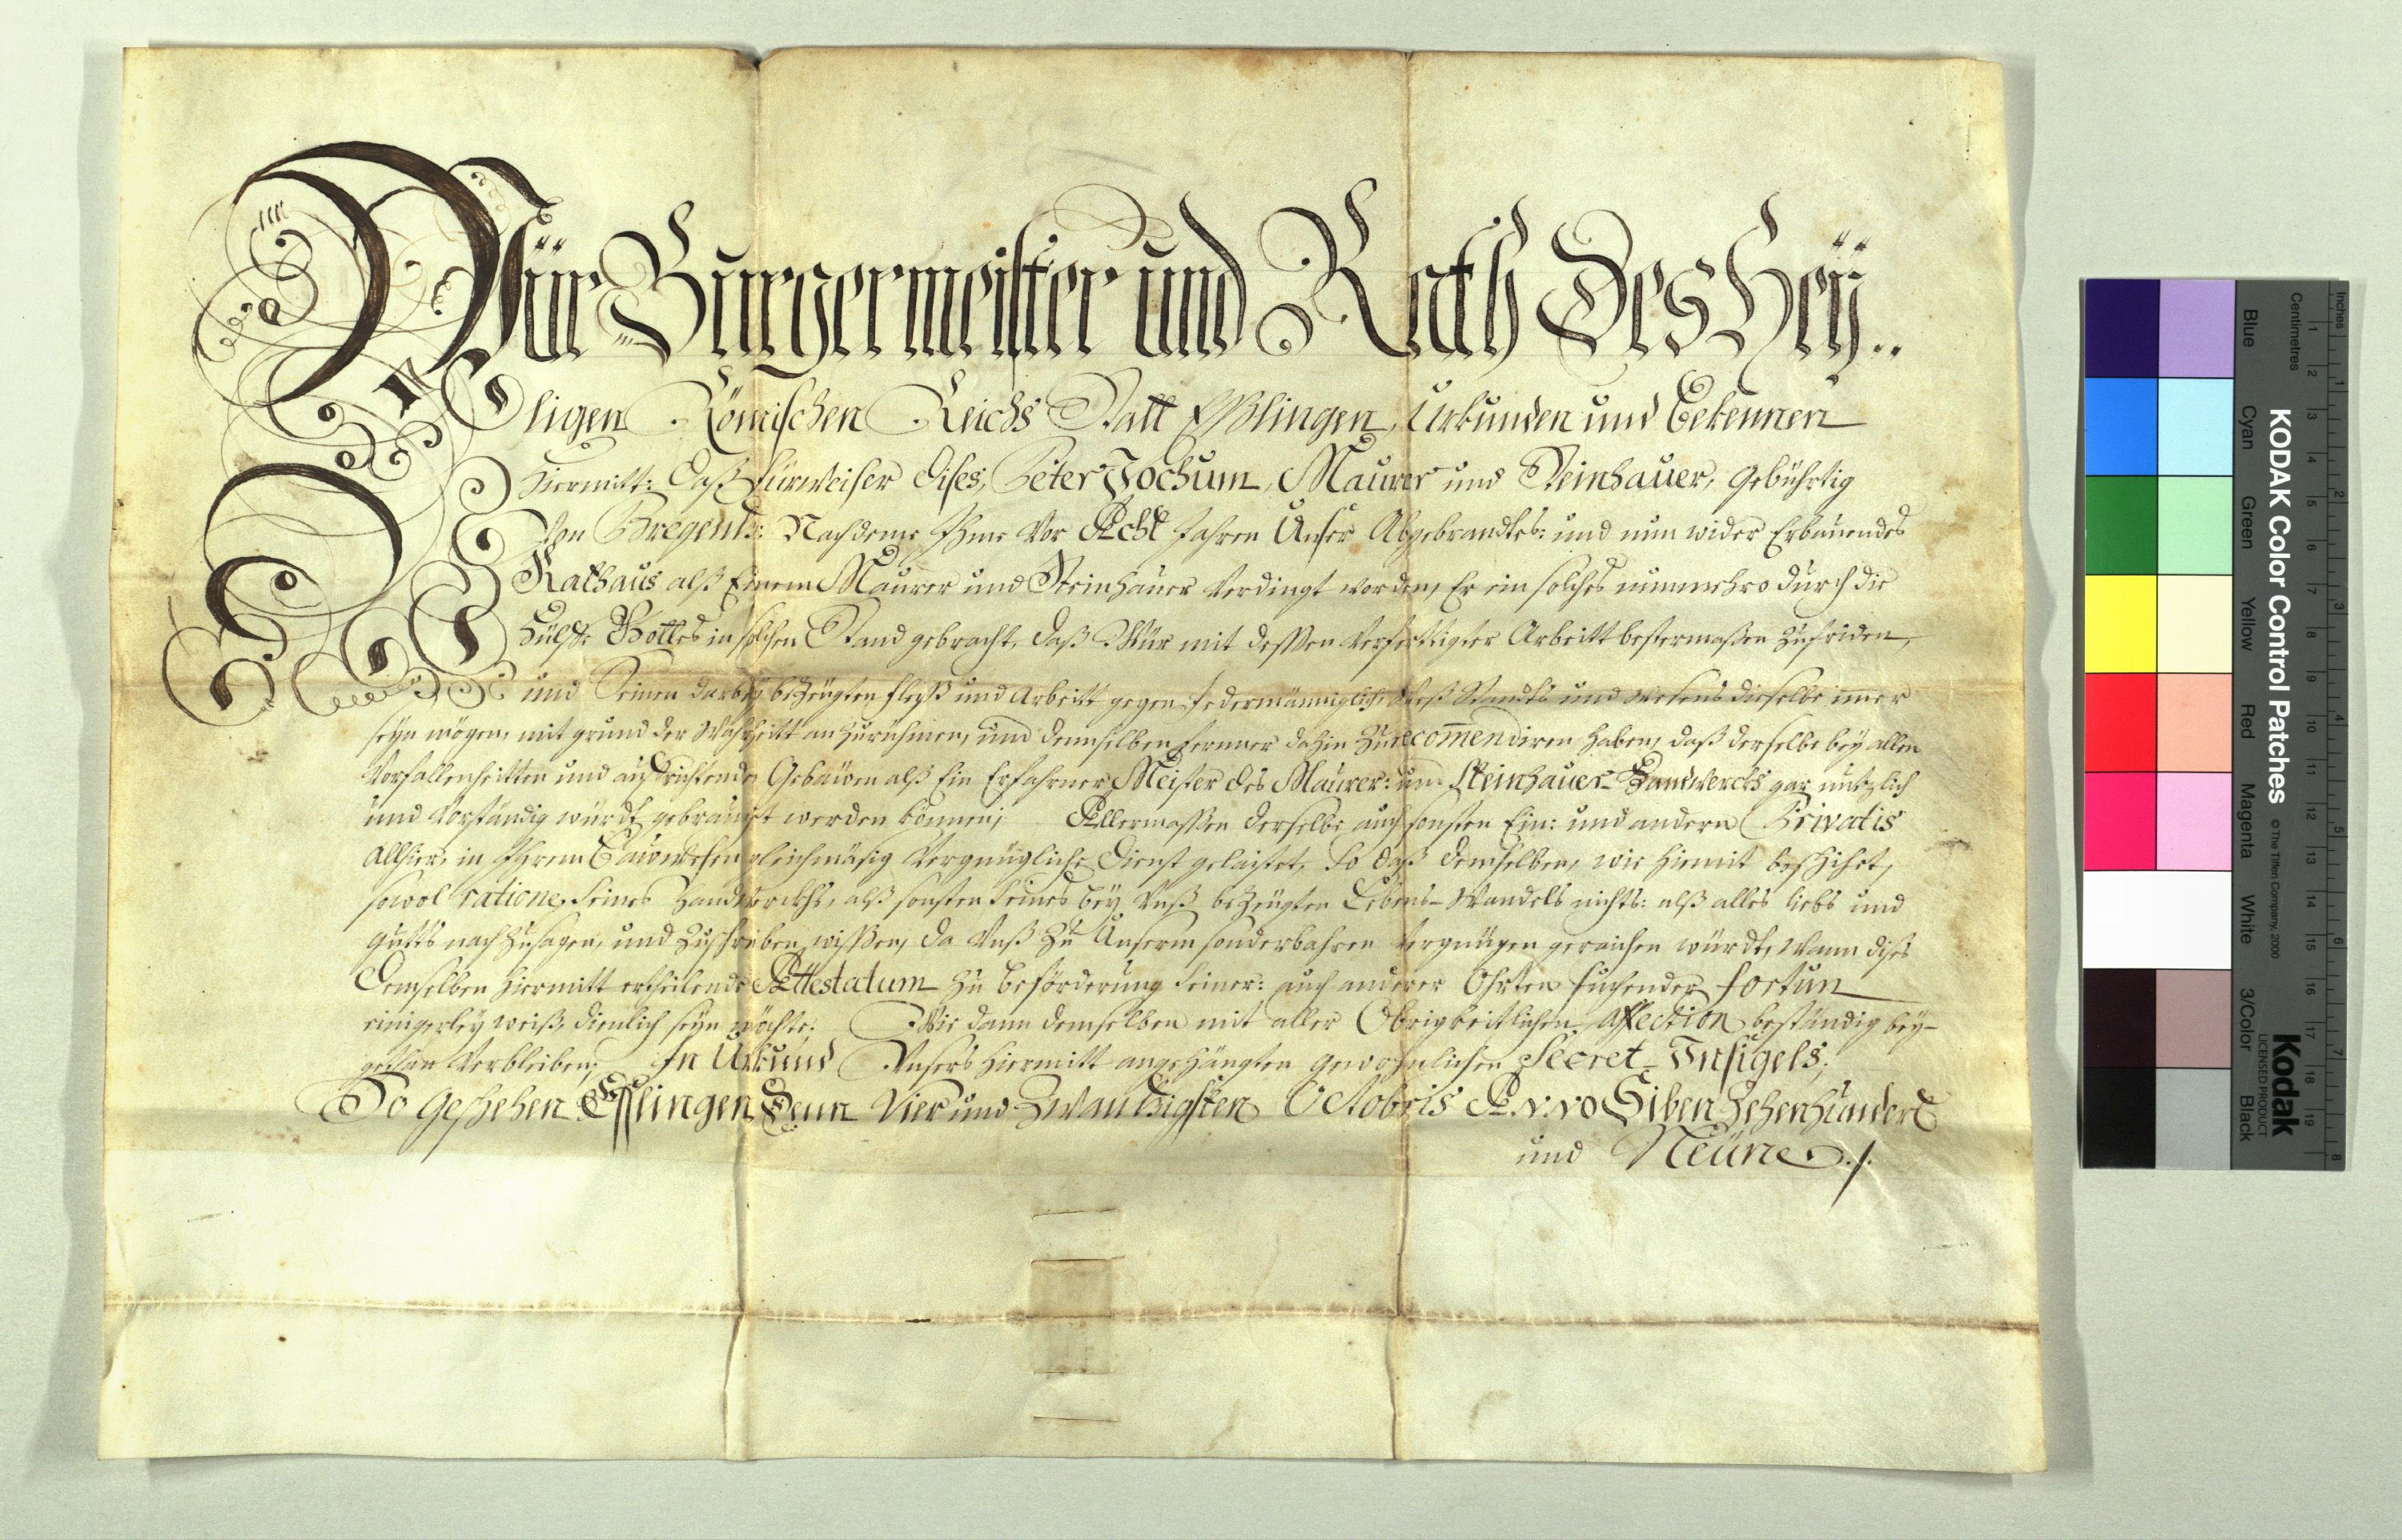 Wür Burgermeister und Rath Des Heÿ..
ligen Römischen Reichs Statt Eßlingen, Urkunden und Bekennen
hiermitt: Daß fürweiser dises, Peter Jochum, Maurer und Steinhauer, gebührtig
Von Bregentz: Nachdeme Ihme vor Acht Jahren Unser Abgebrandtes: und nun wider Erbauendes
Rathaus alß Einem Maurer und Steinhauer verdingt worden, Er ein solches nunmehro durch die
Hülffe Gottes in solchen Stand gebracht, daß Wür mit dessen verferttigter Arbeitt bestermaßen zufriden,
und Seinen darbeÿ bezeügten fleÿß und Arbeitt gegen Jedermänniglich, weß Standts und wesens dieselbe immer
seÿn mögen, mit grund der Wahrheitt anzurühmen, und demselben ferner dahin zu recom̅endiren haben, daß derselbe beÿ allen
Vorfallenheitten und auffrichtende Gebäwen alß Ein Erfahrner Meister des Maurer: und Steinhauer-Handwercks gar nutzlich
und Vorständig würdt gebraucht werden können; Allermaßen derselbe auch sonsten Ein: und andern Privatis
allhier, in Ihrem Bauwesen gleichmäsig Vergnügliche Dienst gelaistet, So daß demselben, wie hiemit beschihet,
sowol ratione seines Handwerckhs, alß sonsten seines beÿ Unß bezeügten Lebens-Wandels nichts: alß alles liebs und
gutts nachzusagen, und zuschreiben wissen, da Unß zu Unserm sonderbahren Vergnügen geraichen würdt, wann dises
Demselben hiermitt ertheilende Attestatum zu beförderung seiner: auch anderer Ohrten suchender fortun
einigerleÿ weiß, dienlich seÿn möchte; Wie dann demselben mit aller Obrigkeitlichen Affection beständig beÿ-
gethan Verbleiben; In Urkund Unsers hiermitt angehängten gewohnlichen Secret-Insigels;
So geschehen Esslingen Denn Vier und Zwantzigsten Octobris A.o v.o Siben Zehenhundert
und Neüne ./.
KODAK Color Control Patches
© The Tiffen Company, 2000
Kodak
LICENSED PRODUCT
Blue Cyan Green Yellow Red Magenta White 3/Color Black
Inches 1 2 3 4 5 6 7 8
Centimetres 1 2 3 4 5 6 7 8 9 10 11 12 13 14 15 16 17 18 19